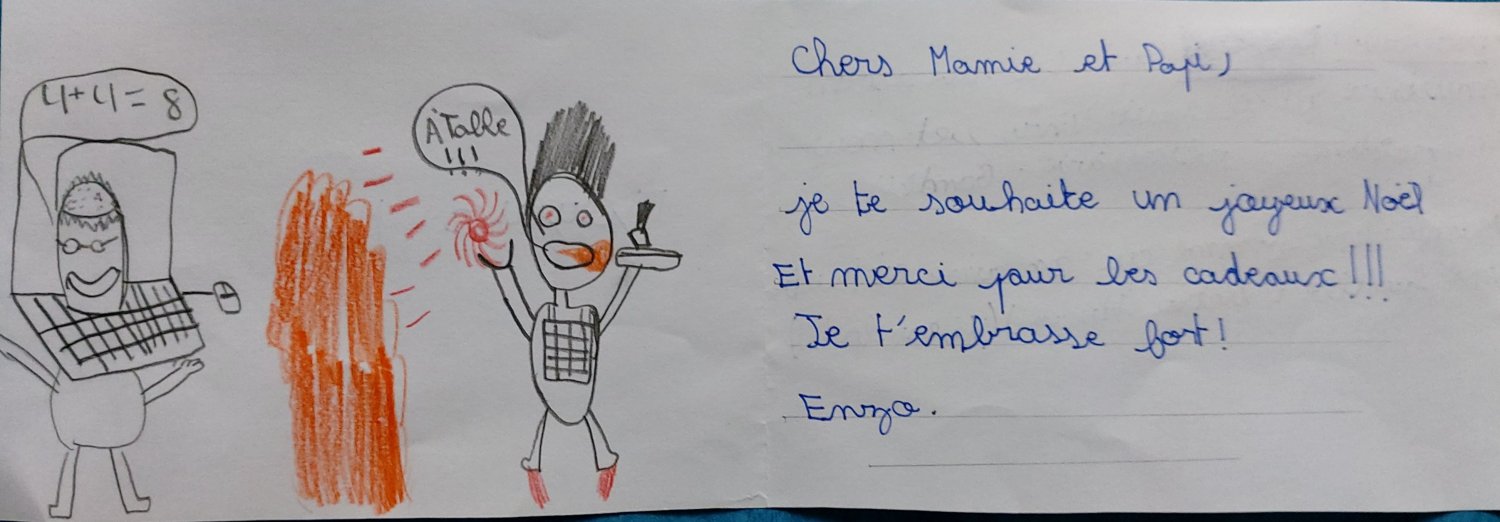 4+4=8
À Table
!!!
Chers Mamie et Papi,
je te souhaite un joyeux Noël
Et merci pour les cadeaux!!!
Je t'embrasse fort!
Enzo.